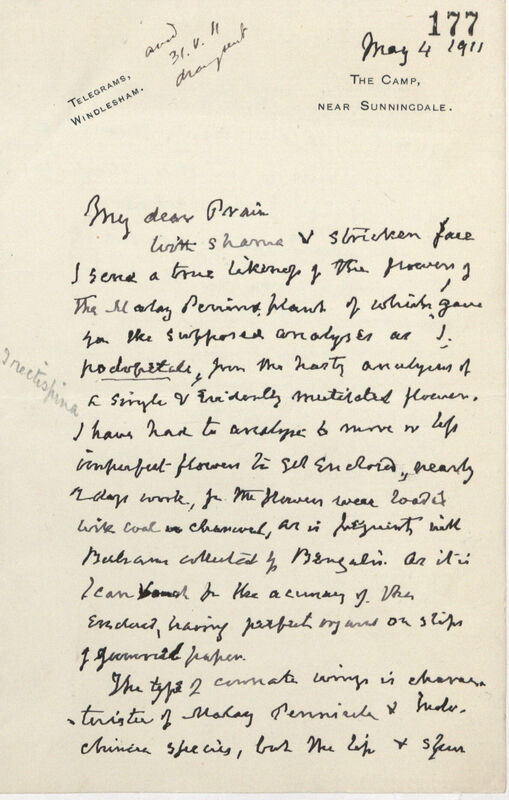 177
May 4 1911
ansd
31.V.11
TELEGRAMS,
WINDLESHAM.
THE CAMP,
NEAR SUNNINGDALE.
My dear Prain
With shame & stricken face
I send a true likeness of the flowers of
the Malay Penins. plant of which I gave
you the supposed analyses as I.
from the hasty analysis of
a single & evidently mutilated flower.
I rectispina
I have had to analyse 6 more or less
imperfect flowers to get enclosed, nearly
2 days work, for the flowers were
with coal or charcoal, as is frequently with
Balsams collected by Bengalis. As it is
I can vouch for the accuracy of the
enclosed, having perfect organs on slips
of gummed paper.
The type of connate wings is charac-
-teristic of Malay Peninsula & Indo-
chinese species, but the lip & spur